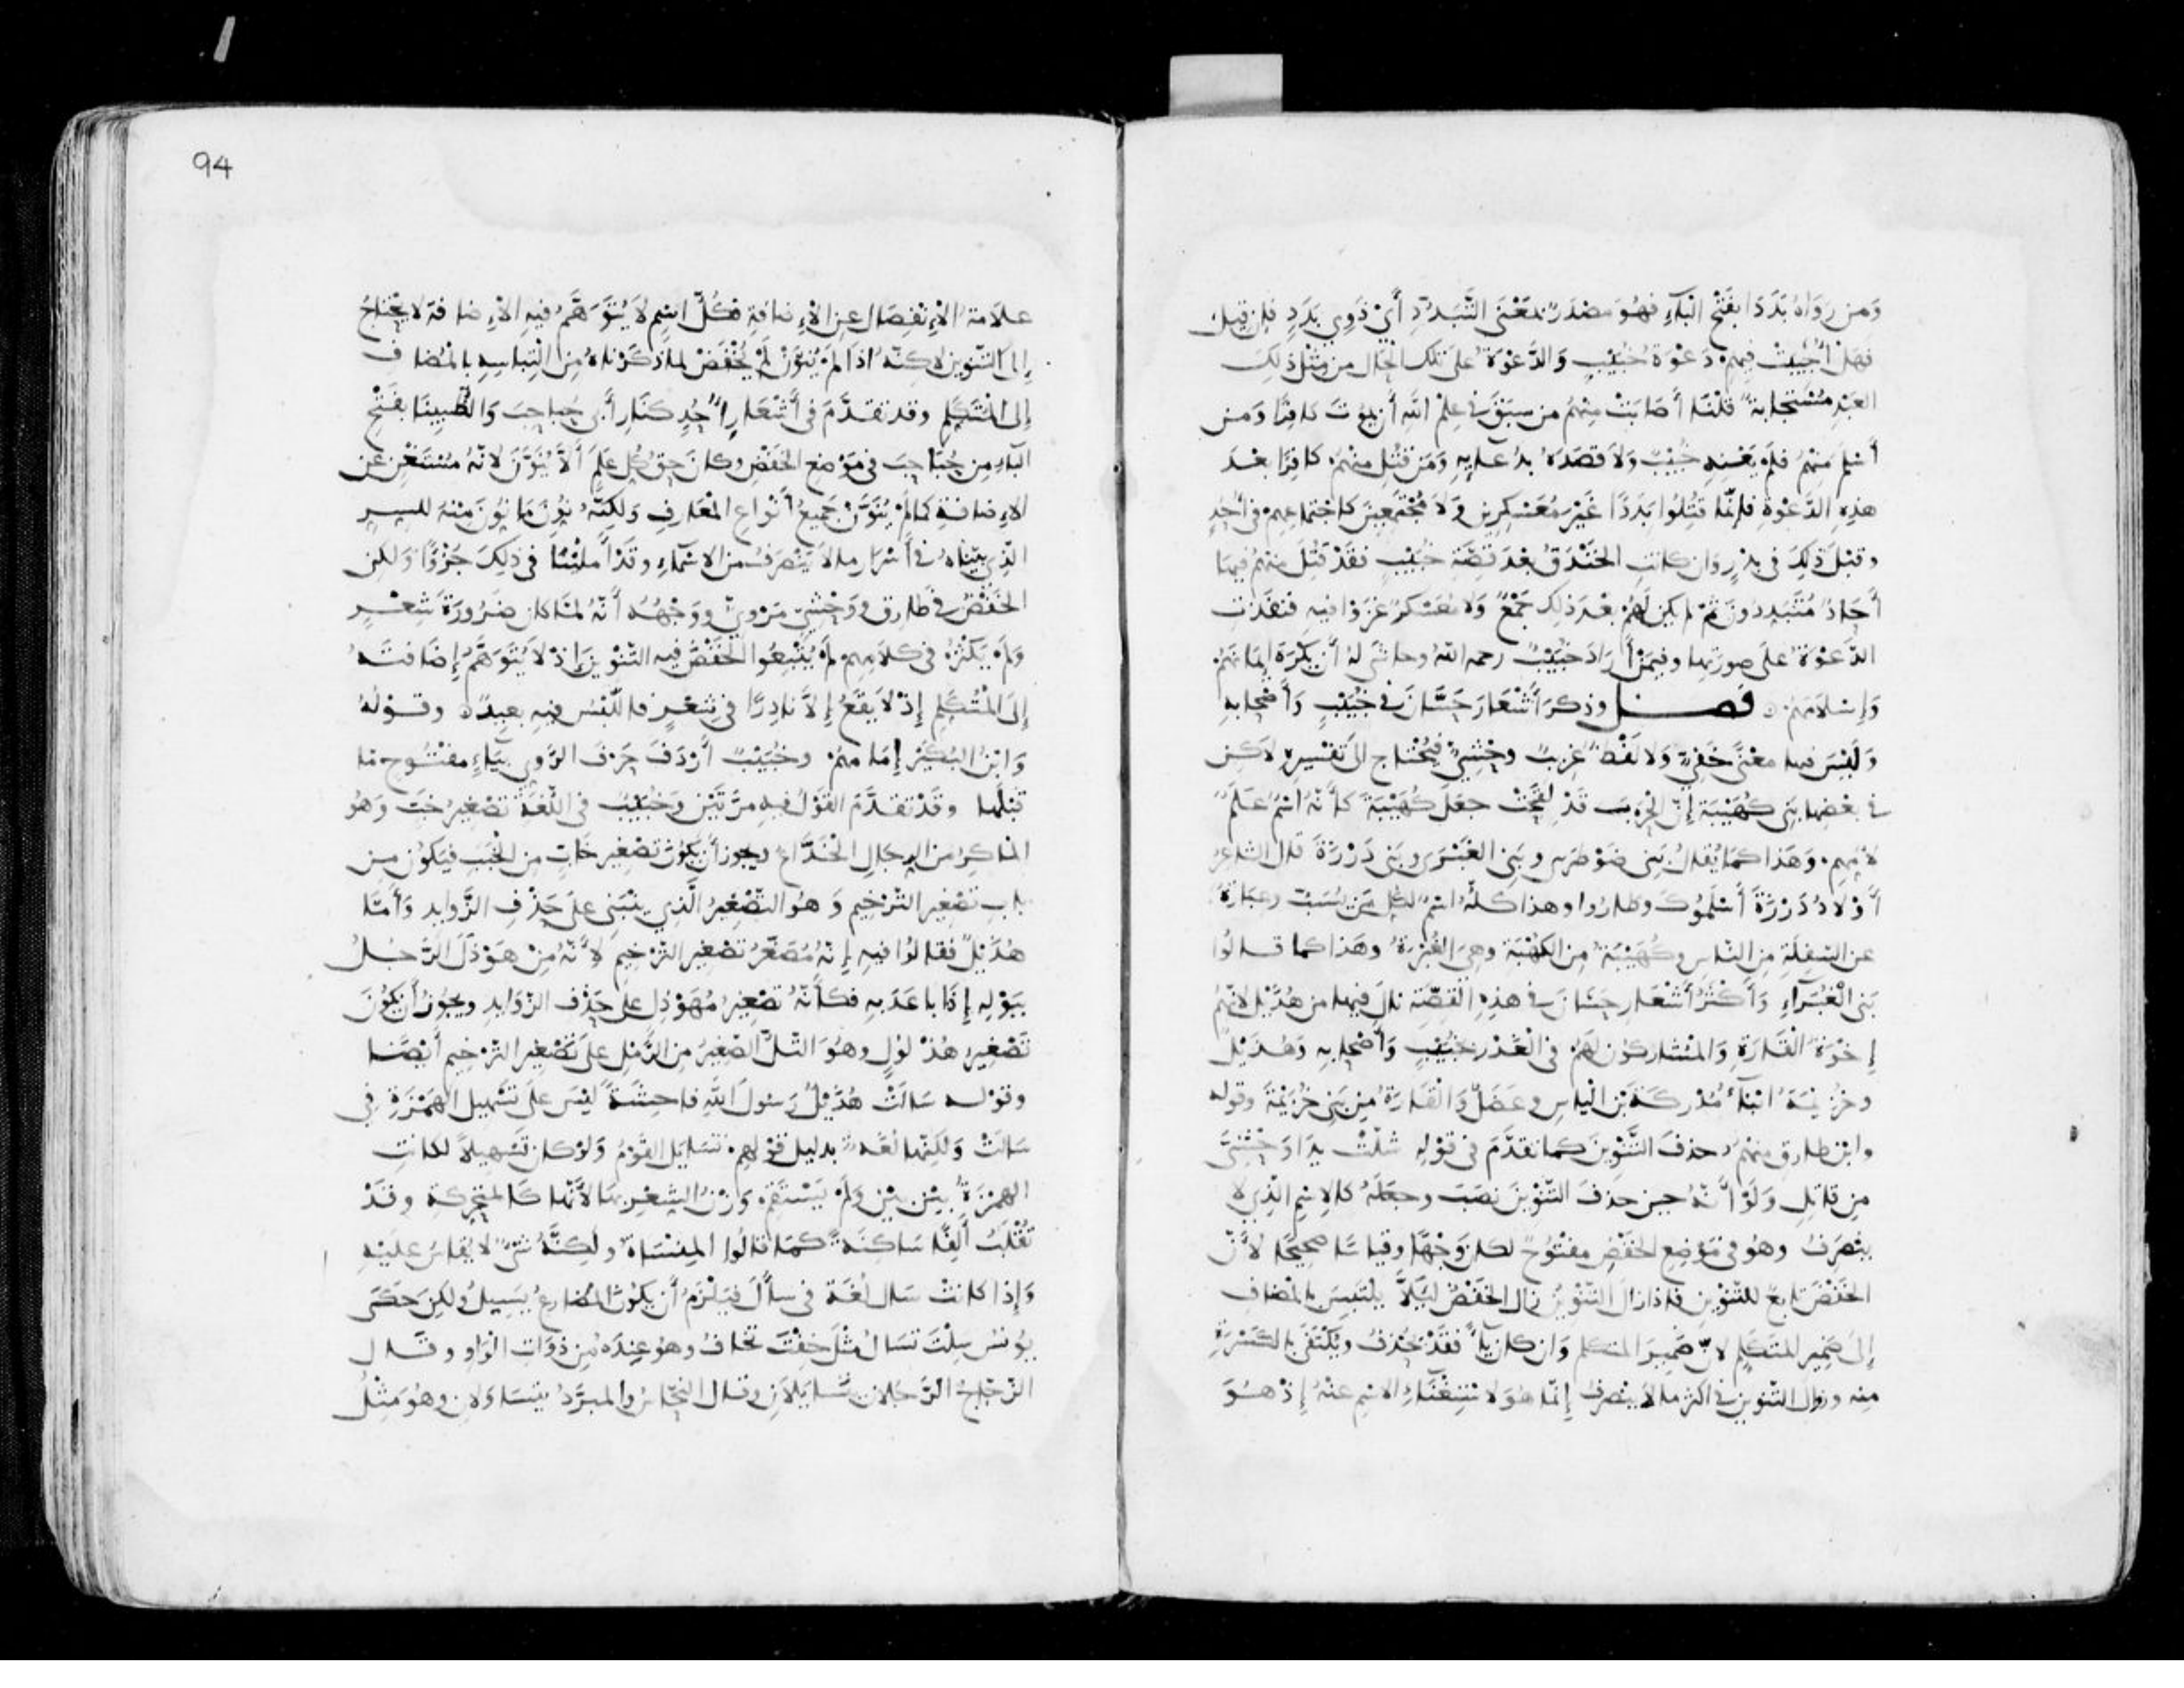 وَمن رَوَاهُ بَدَدًا بفَتْح البَآءِ فهُوَ مَصْدَرٌ بمَعْنَى التَّبَدُّدِ أَيْ ذَوِي بَدَدٍ فإن قيل
فهَل اجُيبتْ فيهم دَعْوَة خُبَيْبٍ وَالدَّعْوَةُ على تلك الحَال من مثل ذلك
العبْد مُسْتَجابة قلنا أصَابَتْ منهم من سبَقَ في عِلْم الله أن يموت كافرًا وَمن
أسْلم منهم فلم يَعْنِهِ خُبَيْبٌ وَلا قصَدَهُ بدُعآيهِ وَمَن قُتِل منهم كافِرًا بعْدَ
هذِهِ الدَّعْوةِ فإنّما قُتِلُوا بَدَدًا غَيْرَ مُعَسْكِرين وَلا مُجْتَمعِينَ كاجتماعِهم في أُحُدٍ
وقبْلَ ذَلِكَ في بدْرٍ وَان كانتِ الخَنْدَقُ بعْدَ قِصَّةِ خُبَيْبٍ فقَدْ قُتِلَ منهُم فيها
أحَادٌ مُتَبَدِدُونَ ثمّ لم يكن لَهُمْ بعْدَ ذلك جَمْعٌ وَلا مُعَسْكَرٌ غزَوْا فيهِ فنَفَذَتِ
الدَّعْوَةُ على صورَتها وفيمَنْ أرَادَ خُبَيْبٌ رحمه الله وحاشَى لهُ أن يَكْرَهَ إيمَانَهُمْ
وَإسْلامَهُمْ ۞ فصل وذكرَ أشْعَارَ حَسَّانَ في خُبَيْبٍ وَأصْحَابِهِ
وَلَيْسَ فيها معْنًى خَفيّ وَلا لَفْظ غريبٌ وحْشِيّ فيُحْتاج الى تفسيره لاكن
في بعْضها بَني كُهَيْبَة إنّ الحَرْبَ قَدْ لَقِحَتْ جعَلَ كُهَيْبَةَ كأنّهُ اسْمُ عَلَمٌ
لأمّهم وَهَذا كما يُقال بَني ضَوْطَرَى وبَني الغَبْرَى وبَني دَرْزَةَ قال الشاعرُ
أوْلادُ دَرْزَةَ أسْلَمُوك وطارُوا وهذا كلّهُ اسمٌ لكل مَن يُسَبّ وعبَارة
عن السفِلَةِ من النّاس وكُهَيْبَة من الكهْبَة وهيَ الغُبْرَة وهَذا كما قالوا
بَني الْغَبْرَآءِ وَأكْثَرُ أشْعَار حَسَّانَ في هذِهِ القِصّةِ نالَ فيها من هُذَيْل لأنّهُمْ
إخْوَةُ القَارَةِ وَالمُشَاركُونَ لَهُمْ في الْغَدْر بخُبَيْبٍ وَأصْحَابِهِ وَهُذَيْل
وخُزَيْمَةُ ابْنَآءُ مُدْركَةَ بْن الْياس وعَضَلٌ وَالْقَارَةُ مِن بَني خُزَيْمَةَ وقوله
وابن طارق منهُمُ حذفَ التَّنْوِينَ كما تقدَّمَ في قوْلِهِ شلّتْ يدَا وَحْشِيَّ
مِن قاتِلِ وَلَوْ أنّهُ حين حذفَ التّنْوِينَ نصَبَ وجعَلَهُ كالاِسْمِ الّذِي لا
ينْصَرفُ وهُو في مَوْضِع الخَفْضِ مفتُوحٌ لكان وَجْهًا وقياسًا صحيحًا لأنّ
الخَفْضَ تابعٌ للتّنْوِين فإذا زالَ التّنْوِينُ زال الخَفْضُ لئلاّ يلْتَبِسَ بالمُضاف
إلى ضَمير المتَكلّم لانّ ضَميرَ المتكلم وَان كان يآءً فقَدْ يُحْذَفُ ويُكْتَفَى بالكَسْرَةِ
منه وزوال التّنْوين في اكثر ما لا ينْصرفُ إنّمَا هُوَ لاسْتِغْنآءِ الاسْمِ عنْهُ إذْ هُوَ
94
علامَة الاِنْفِصَال عن الاِضافةِ فكُلّ اسْمٍ لا يُتَوَهَّمُ فيهِ الاِضافة لا يحْتاجُ
إلى التّنْوين لاكنّهُ اذا لمْ يُنَوَّنْ لَمْ يُخْفَضْ لما ذكَرْناهُ مِن الْتِباسِهِ بالمُضاف
إلى المُتَكلّم وقد تقدَّمَ في أشْعَار أُحُدٍ كنَار أبي حُبَاحِبَ وَالظُّبينَا بفَتْح
البَاء مِن حُبَاحِبَ في مَوْضع الخَفْضِ وكانَ حقّ كُل عَلَمٍ ألاّ يُنَوَّنَ لانّهُ مُسْتَغْن عن
الاِضافَةِ كما لَمْ يُنَوَّنْ جَميعُ أنْواع المَعَارفِ وَلَكِنّهُ نُوّنَ مَا نُوّنَ مِنْهُ للسِر
الّذِي بيّناهُ في أسْرَار ما لا يَنْصَرفُ من الاسْمآءِ وقَدْ أمْلَيْنا في ذلِكَ جُزْءًا وَلكن
الخَفْضُ في طارقٍ ووَحْشِيّ مَرْوِيّ ووَجْهُهُ أنّهُ لمّا كان ضَرُورَةَ شِعْرٍ
وَلَمْ يَكْثُرْ في كلامِهِمْ لَمْ يُتْبِعُوا الخَفْضَ فيه التّنْوِينَ إذْ لا يُتَوَهَّمُ إضَافتهُ
إلى المُتَكَلِّمِ إذْ لا يَقَعُ إلاّ نادِرًا في شِعْرٍ فاللّبْسُ فيهِ بعِيدٌ ۞ وقوْلهُ
وَابْنُ البُكَيْر إمَامُهُمْ وخُبَيْبٌ أرْدَفَ حَرْفَ الرَّوِي بيَاءٍ مفتُوحٍ مَا
قبْلَها وقَدْ تقَدَّمَ القَوْلُ فيهِ مَرّتَيْن وَخُبَيْبٌ في اللّغَةِ تصْغيرُ خَبّ وَهُو
الماكِرُ من الرجَالِ الخَدَّاعُ ويجوز أن يَكُونَ تصْغير خابّ من الخَبَب فيَكُونُ من
باب تصْغير التّرْخِيم وَهُو التّصْغيرُ الّذِي ينْبَني على حَذْفِ الزَّوايد وَأمّا
هُذَيْلٌ فقالوُا فيهِ إنّهُ مُصَغّرُ تصْغير التّرْخيم لأنّهُ مِنْ هَوْذَلَ الرَّجُلُ
ببَوْلِهِ إذَا باعَدَ بهِ فكأنّهُ تصْغيرُ مُهَوْذِلٍ على حذْف الزّوَايدِ ويجوُز أن يَكُونَ
تَصْغيرَ هُذْلُولٍ وهُوَ التّلّ الصَّغيرُ مِن الرّمْلِ علَى تَصْغير التّرْخيم أيْضًا
وقوْله سَالَتْ هُذَيْلٌ رَسُولَ اللهِ فاحِشَةً ليْسَ على تسْهيل الهَمْزَةِ في
سَالَتْ وَلكِنّها لُغَةٌ بدليل قوْلهِمْ تسَايَلَ القَوْمُ وَلوْ كان تَسْهيلاً لكانتِ
الهمْزَةُ بيْن بيْن ولَمْ يَسْتَقِمْ وَزْنُ الشِعْرِ بها لأنّها كالمتحركة وقَدْ
تُقْلَبُ ألِفًا سَاكِنَةً كمَا قالُوا المِنْسَاة ولكِنَّهُ شيْءٌ لا يُقاسُ عليْهِ
وَإذا كانتْ سَال لُغَة في سأَلَ فيَلْزَمُ أن يكوُنَ المُضارعُ يسِيلُ ولكِن حَكَى
يوُنسُ سِلْتَ تسَالُ مِثْلَ خِفْتَ تخافُ وهُو عِندَهُ مِن ذوَات الوَاو وقَال
الزّجّاجُ الرَّجُلان يتَسَايَلانِ وقال النحّاسُ والمبَرَّدُ يتَسَاوَلانِ وهُوَ مِثْلُ